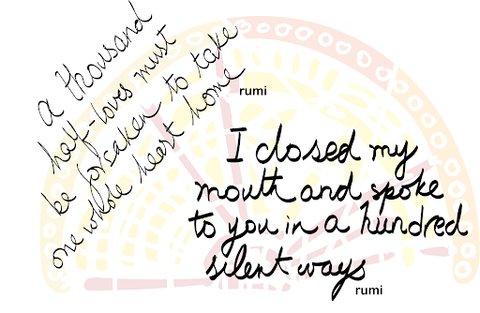 a thousand
half-loves must
be forsaken to take
one whole heart home
rumi
I closed my
mouth and spoke
to you in a hundred
silent ways
rumi